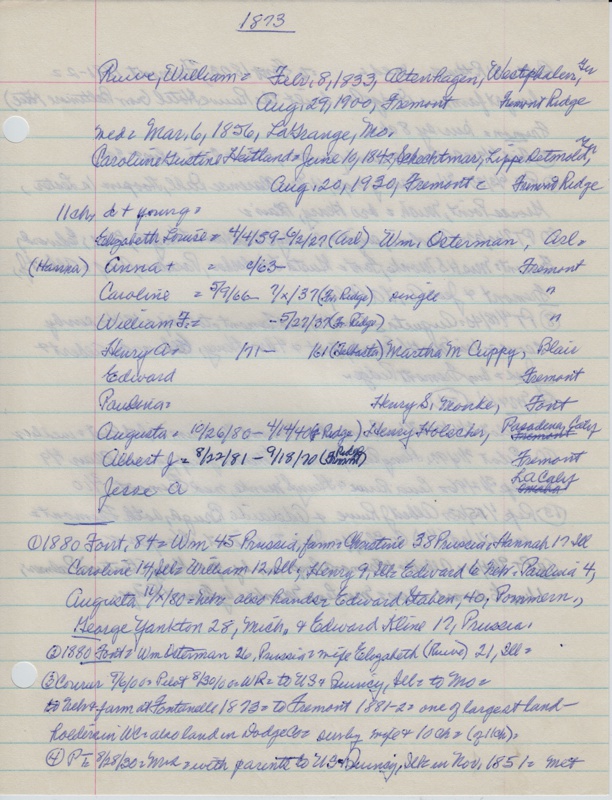 1873
Ruwe, William = Feb. 8, 1833, Altenhagen, Westphalen, Ger
Aug. 29, 1900, Fremont Fremont Ridge
med = Mar. 6, 1856, LaGrange, Mo =
Caroline Heitland = June 10, 184 Lippe Detmold, Gr
Aug. 20, 1930, Fremont = Fremont Ridge
11 chs d + young =
Elizabeth Louise = 4/4/59 - 6/2/27 (Arl) Wm. Osterman, Arl =
(Hanna) Anna + = 0/63- Fremont
Caroline = 5/9/66 - 7/x/37 (Fr. Ridge) single "
William F. = - 5/27/37 (Fr. Ridge) "
Henry A = /71 - /61 Martha M Cuppy, Blair
Edward Fremont
Paulina = Henry S. Monke, Font
Augusta = 10/26/80 - 4/14/40 (Fr Ridge) Henry Holscher, Pasadena, Calif Fremont
Albert J = 8/22/81 - 9/18/20 (Ridge Fremont) Fremont
Jesse A LA Calif Omaha
① 1880 Font, 84 = Wm 45 Prussia, farm = Christine 38 Prussia = Hannah 17 Ill
Caroline 14, Ill = William 12, Ill, Henry 9, Ill = Edward 6 Nebr = Paulina 4,
Augusta, /80 = Nebr = also hands = Edward Staben, 40, Pommern.,
George Yankton 28, Mich. & Edward Kline 17, Prussia.
② 1880 Font = Wm Osterman 26, Prussia = wife Elizabeth (Ruwe) 21, Ill =
③ Courier = Pilot 8/30/00 = WR = to US & Quincy, Ill = to Mo =
to Nebr & farm at Fontenelle 1873 = to Fremont 1881-2 = one of largest land-
holders in WC = also land in Dodge Co = sur by wife & 10 ch = (of 11 ch) =
④ 8/28/30 = Mrs = with parents to US = Quincy, Ill = in Nov, 1851 = met